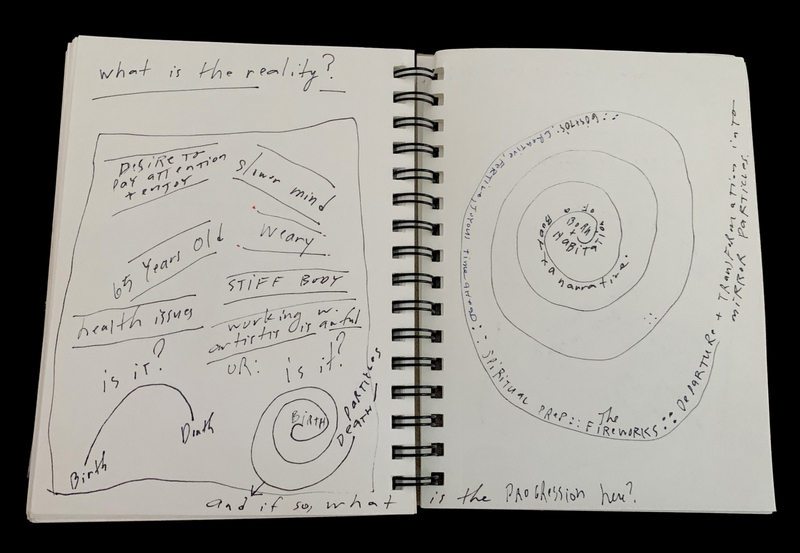 what is the reality?
DESIRE TO
PAY ATTENTION
+ ENJOY
slower mind
Weary
65 Years Old
STIFF BODY
health issues
working w.
artists is awful
is it?
OR: is it?
Birth
Death
BIRTH
DEATH
PARTICLES
and if so, what is the PROGRESSION here?
BORN
+
HABITATION
OF a
BODY + a narrative.
SPIRITUAL PREP:: The FIREWORKS :: DEPARTURE + TRANSFORMATION into
MIRROR PARTICLES